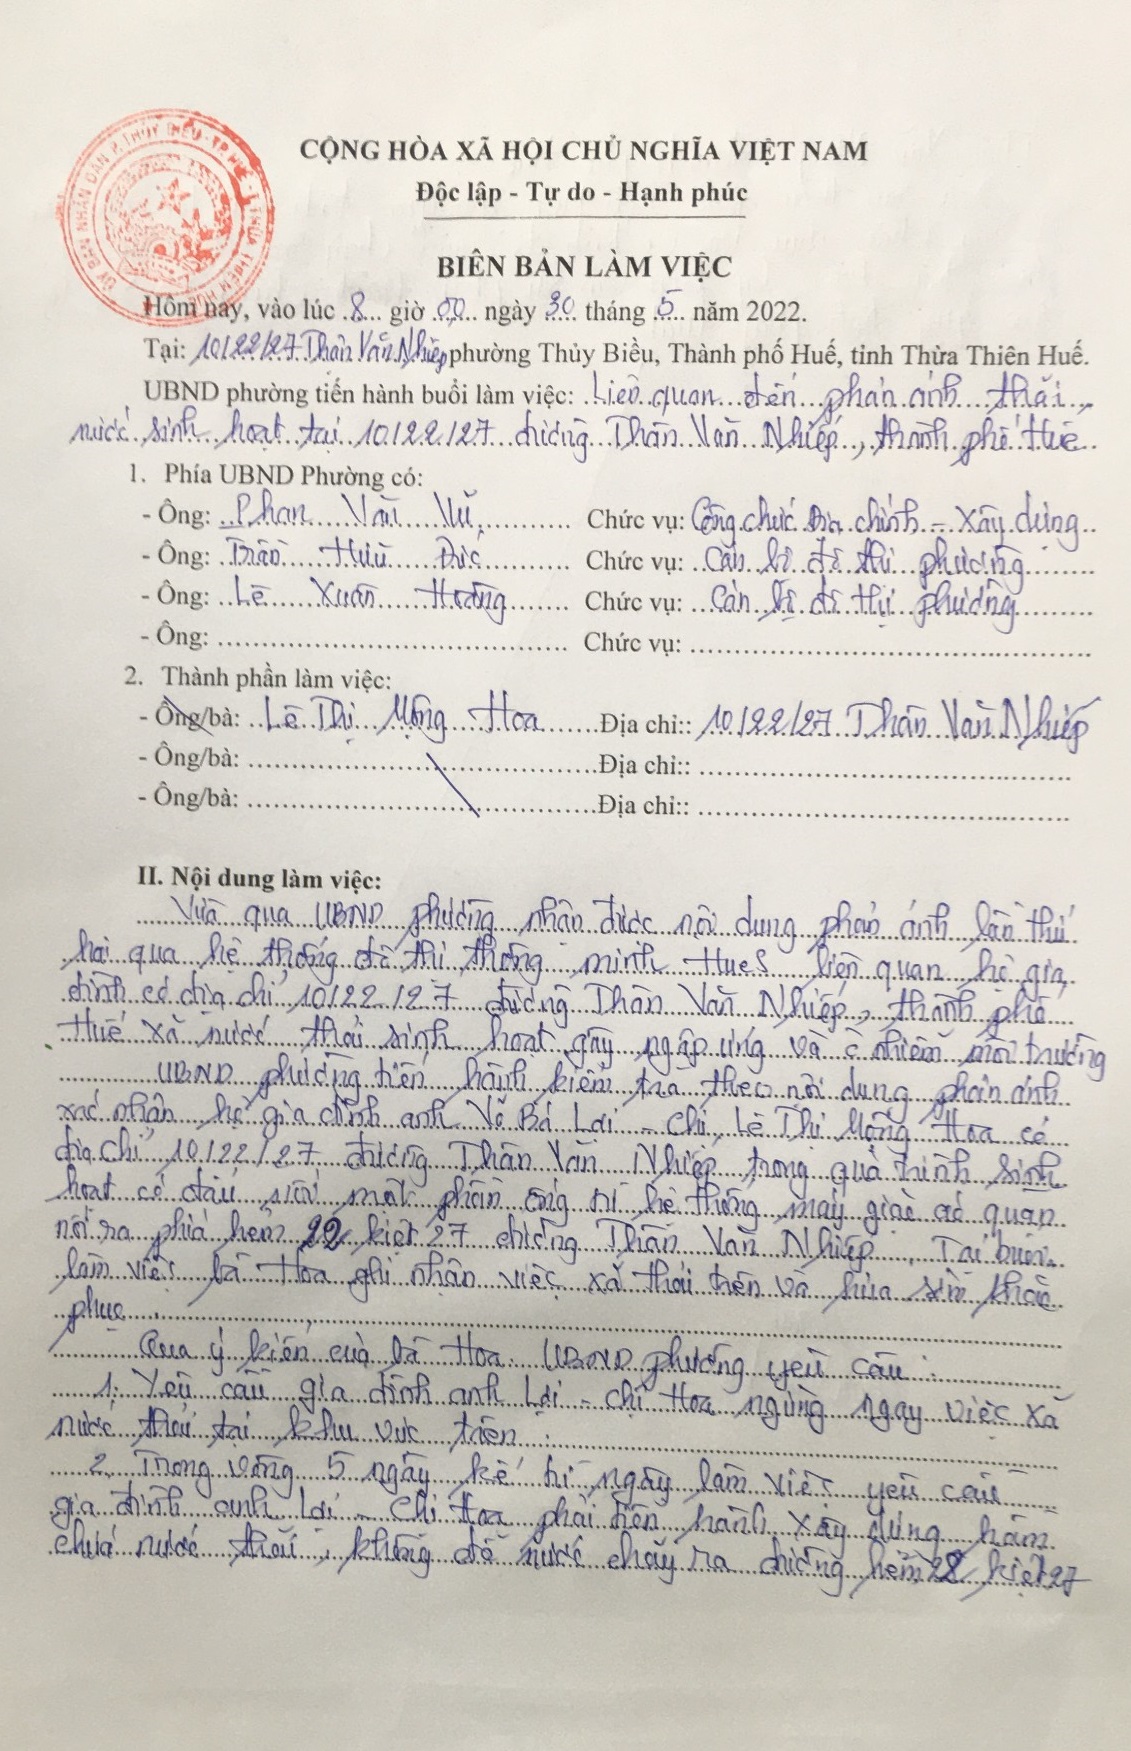 ỦY BAN NHÂN DÂN P. THỦY BIỀU - TP HUẾ - T. THỪA THIÊN HUẾ
CỘNG HÒA XÃ HỘI CHỦ NGHĨA VIỆT NAM
Độc lập - Tự do - Hạnh phúc
BIÊN BẢN LÀM VIỆC
Hôm nay, vào lúc 8 giờ 00 ngày 30 tháng 5 năm 2022.
Tại: 10/22/27 Thân Văn Nhiếp phường Thủy Biều, Thành phố Huế, tỉnh Thừa Thiên Huế.
UBND phường tiến hành buổi làm việc: Liên quan đến phản ánh thải
nước sinh hoạt tại 10/22/27 đường Thân Văn Nhiếp, thành phố Huế
1. Phía UBND Phường có:
- Ông: Phan Văn Vũ Chức vụ: Công chức Địa chính - Xây dựng
- Ông: Trần Hữu Đức Chức vụ: Cán bộ đô thị phường
- Ông: Lê Xuân Hoàng Chức vụ: Cán bộ đô thị phường
- Ông: Chức vụ:
2. Thành phần làm việc:
- Ông/bà: Lê Thị Mộng Hoa Địa chỉ:: 10/22/27 Thân Văn Nhiếp
- Ông/bà: Địa chỉ::
- Ông/bà: Địa chỉ::
II. Nội dung làm việc:
Vừa qua UBND phường nhận được nội dung phản ánh lần thứ
hai qua hệ thống đô thị thông minh HueS liên quan hộ gia
đình có địa chỉ 10/22/27 đường Thân Văn Nhiếp, thành phố
Huế xả nước thải sinh hoạt gây ngập úng và ô nhiễm môi trường
UBND phường tiến hành kiểm tra theo nội dung phản ánh
xác nhận hộ gia đình anh Võ Bá Lợi - Chị Lê Thị Mộng Hoa có
địa chỉ 10/22/27 đường Thân Văn Nhiếp trong quá trình sinh
hoạt có đấu nối một phần ống từ hệ thống máy giặc áo quan
nối ra phía hẻm 22 kiệt 27 đường Thân Văn Nhiếp. Tại buổi
làm việc bà Hoa ghi nhận việc xả thải trên và hứa sẽ khắc
phục.
Qua ý kiến của bà Hoa UBND phường yêu cầu:
1. Yêu cầu gia đình anh Lợi - chị Hoa ngừng ngay việc xả
nước thải tại khu vực trên.
2. Trong vòng 5 ngày kể từ ngày làm việc yêu cầu
gia đình anh Lợi - Chị Hoa phải tiến hành xây dựng hầm
chứa nước thải, không để nước chảy ra đường hẻm 28 kiệt 27